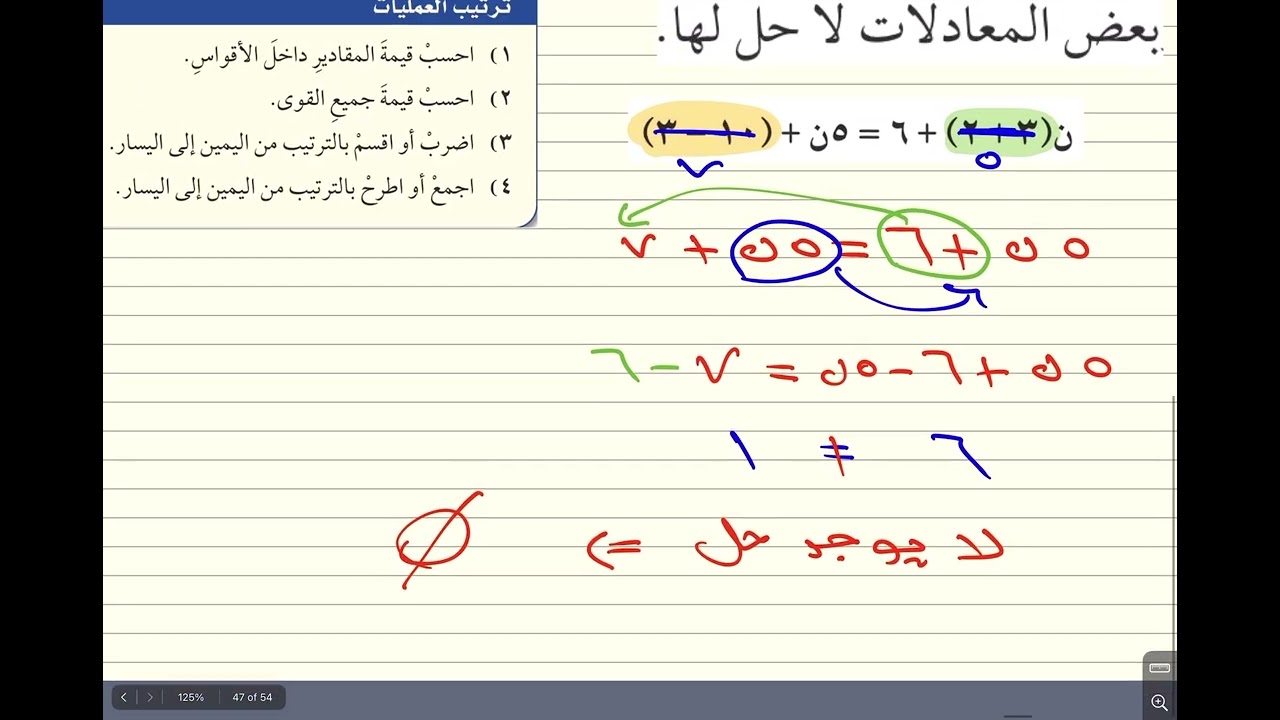 بعض المعادلات لا حل لها.
ترتيب العمليات
١) احسبْ قيمةَ المقاديرِ داخلَ الأقواسِ.
٢) احسبْ قيمةَ جميعِ القوى.
٣) اضربْ أو اقسمْ بالترتيب من اليمين إلى اليسار.
٤) اجمعْ أو اطرحْ بالترتيب من اليمين إلى اليسار.
ن(٣ + ٢) + ٦ = ٥ن + (١٠ − ٣)
٥ ٧
٥ ن + ٦ = ٥ ن + ٧
٥ ن + ٦ - ٥ن = ٧ - ٦
٦ ≠ ١
لا يوجد حل => ∅
125% 47 of 54